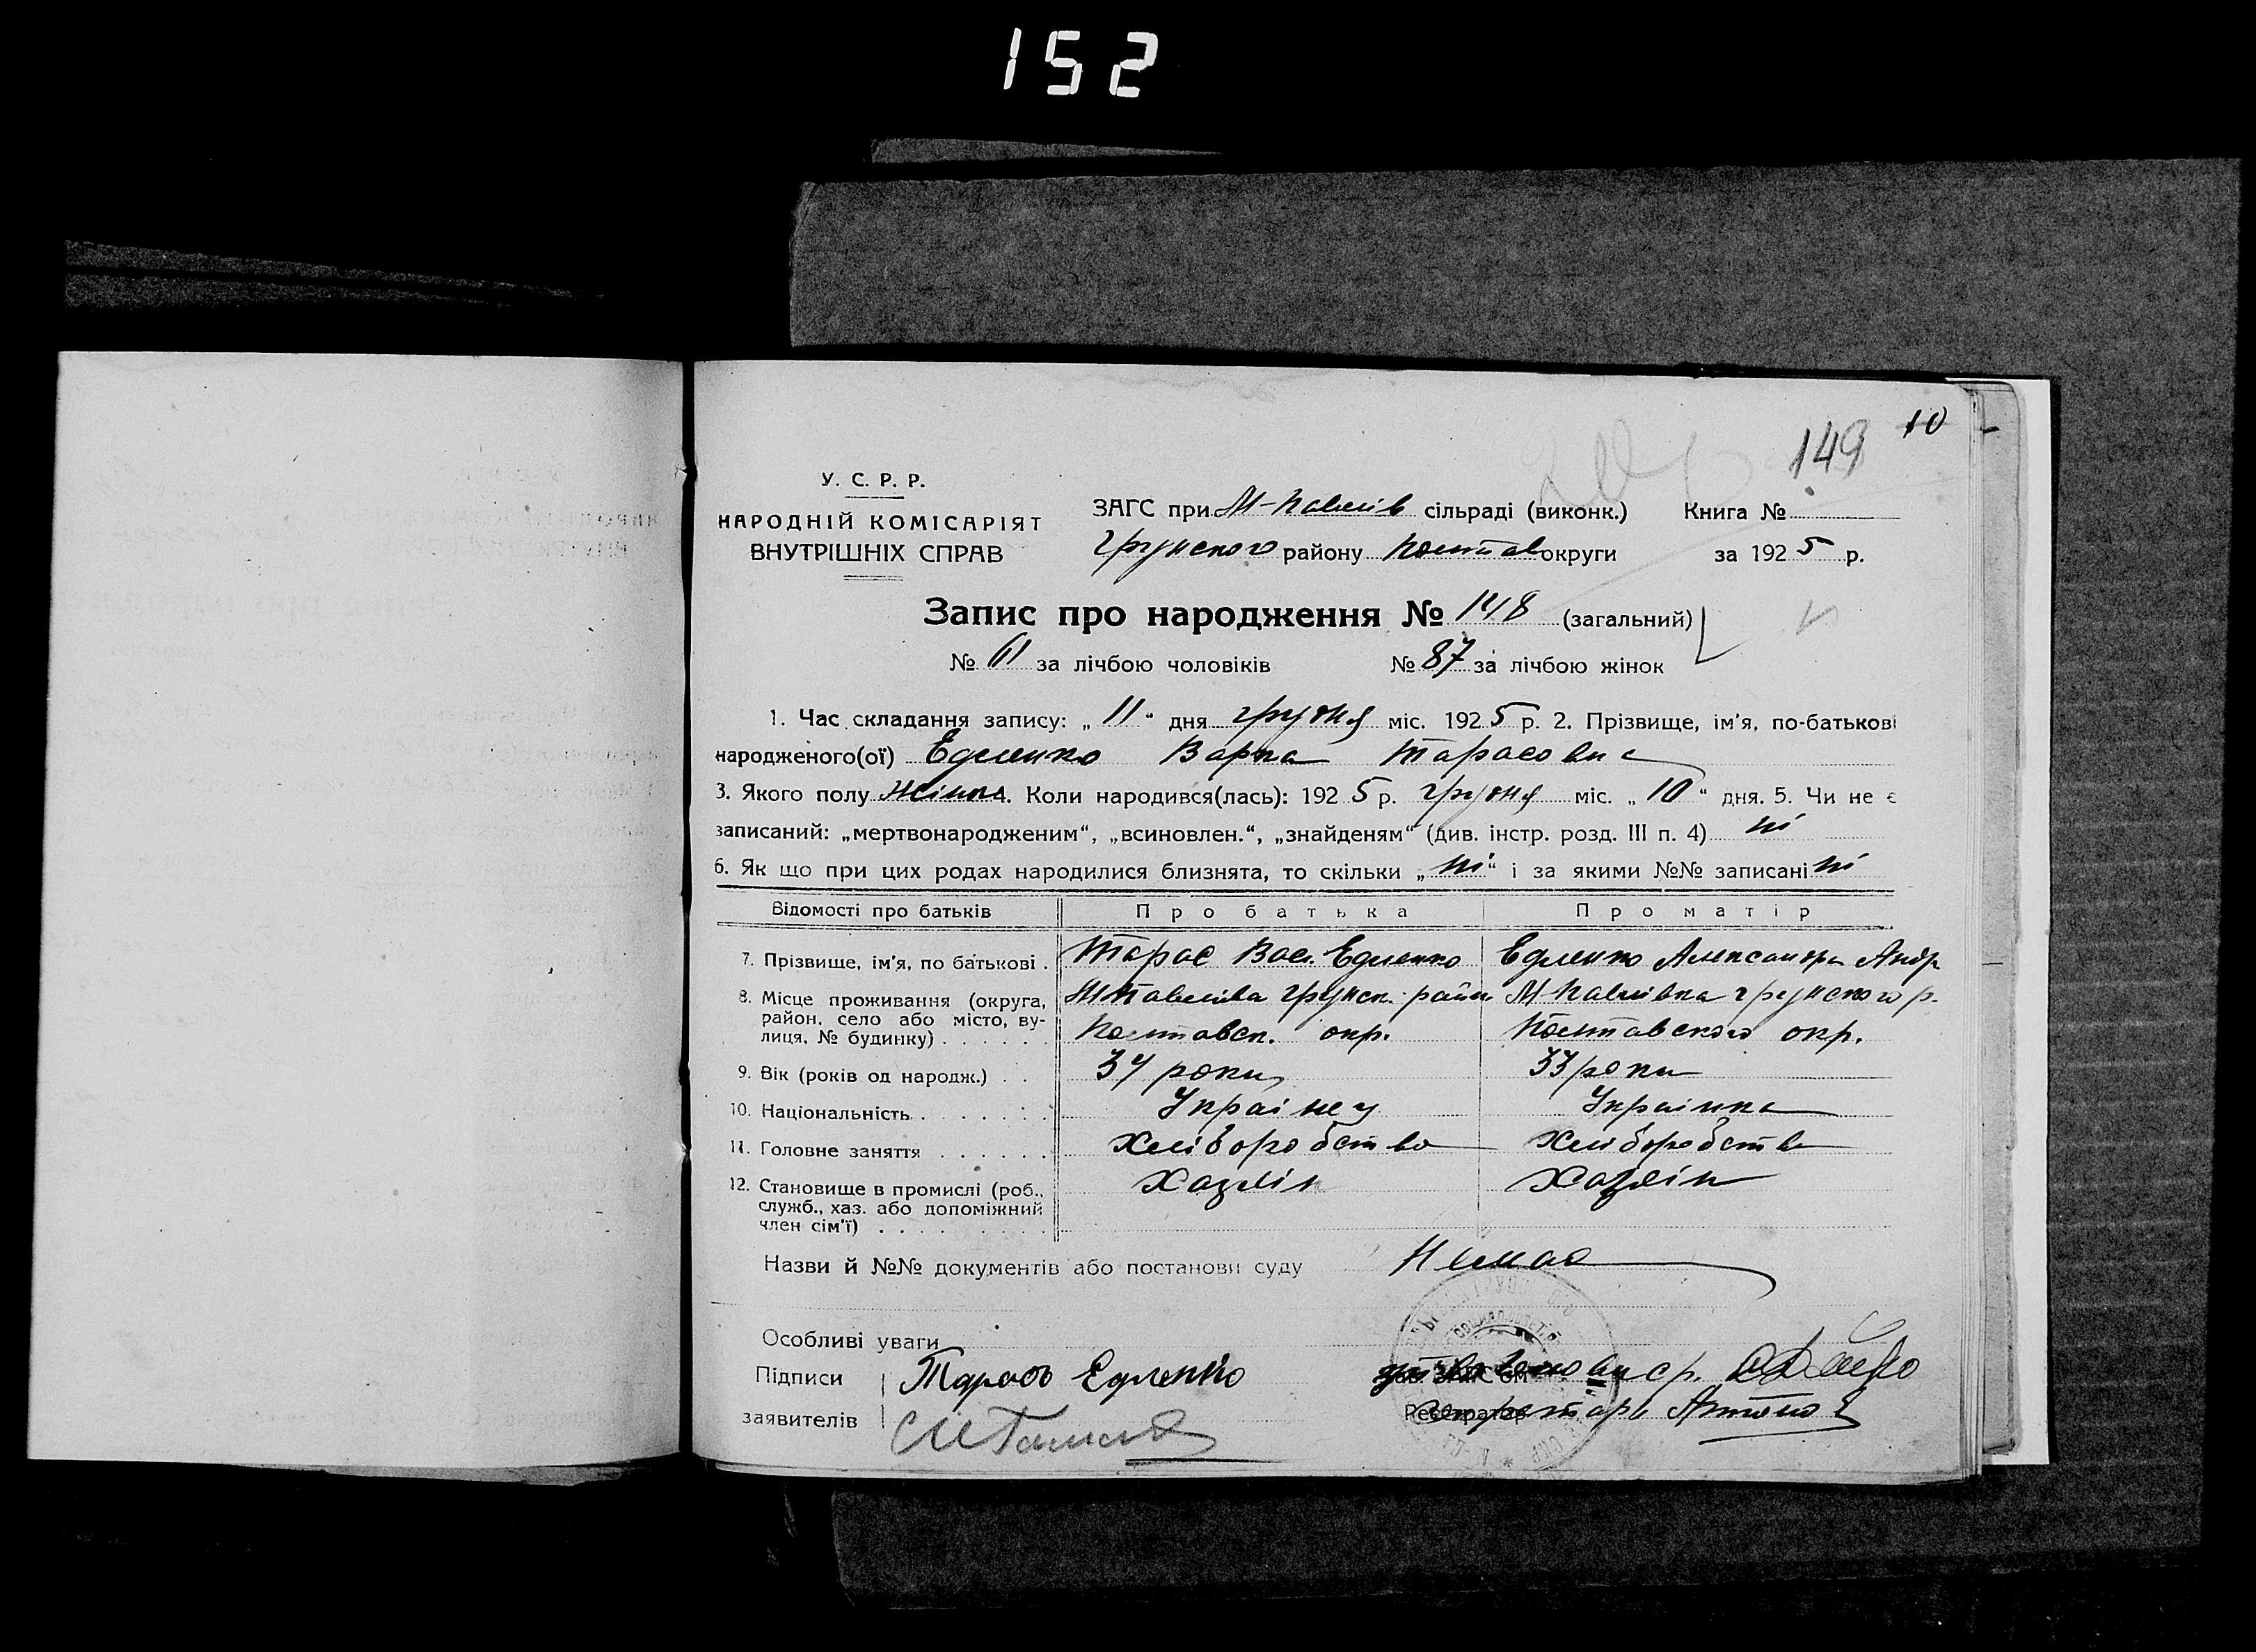 152
10
149
У. С. Р. Р.
НАРОДНІЙ КОМІСАРІЯТ
ВНУТРІШНІХ СПРАВ
ЗАГС при М-Павлів сільраді (виконк.) Книга №
Грунского району Полтав округи за 1925 р.
Запис про народження № 148 (загальний)
№ 61 за лічбою чоловіків № 87 за лічбою жінок
1. Час складання запису: „ 11 “ дня грудня міс. 1925 р. 2. Прізвище, ім'я, по-батькові
народженого(ої) Варка Тарасовна
3. Якого полу Жіноч. Коли народився(лась): 1925 р. грудня міс. „ 10 “ дня. 5. Чи не є
записаний: „мертвонародженим“, „всиновлен.“, „знайденям“ (див. інстр. розд. III п. 4) ні
6. Як що при цих родах народилися близнята, то скільки „ ні “ і за якими №№ записані ні
Відомості про батьків Про батька Про матір
7. Прізвище, ім'я, по батькові . Тарас Вас. Едленко Едленко Александра Андр
8. Місце проживання (округа, М Павлівка грунск. район М Павлівка грунского р.
район, село або місто, ву-
лиця, № будинку) . . . . . Полтавск. окр. Полтавского окр.
9. Вік (років од народж.) . . 34 роки 33 роки
10. Національність . . . . . . Українец Українка
11. Головне заняття . . . . . . Хліборобство Хліборобство
12. Становище в промислі (роб., Хазяїн Хазяїн
служб., хаз. або допоміжний
член сім'ї) . . . . . . . . .
Назви й №№ документів або постанови суду Немає
Особливі уваги
Підписи Тарасъ Едленко
заявителів
Секретарь Антоно